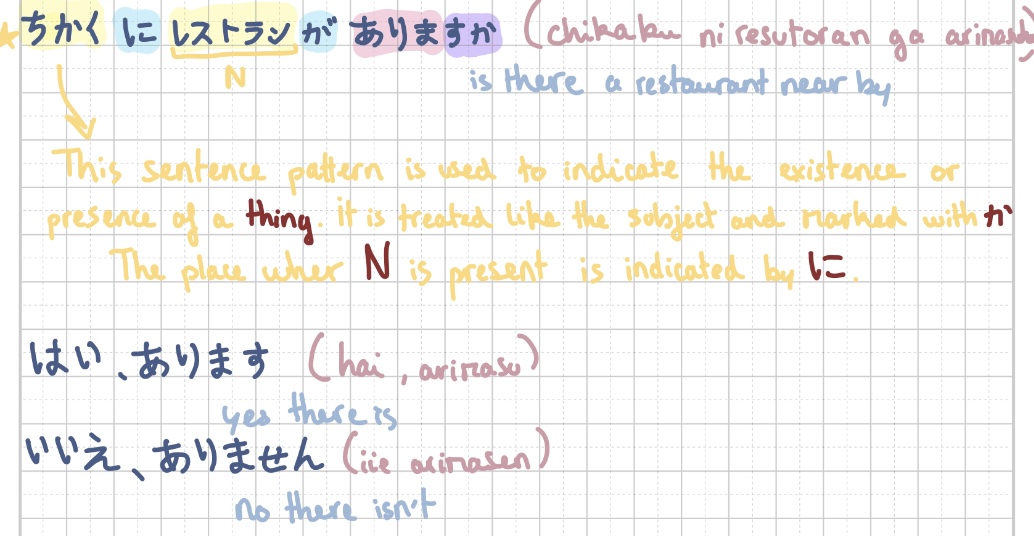 ★ ちかく に レストラン が ありますか (chikaku ni resutoran ga arimasu)
N is there a restaurant near by
This sentence pattern is used to indicate the existence or
presence of a thing. it is treated like the subject and marked with が
The place wher N is present is indicated by に.
はい、あります (hai, arimasu)
yes there is
いいえ、ありません (iie arimasen)
no there isn't